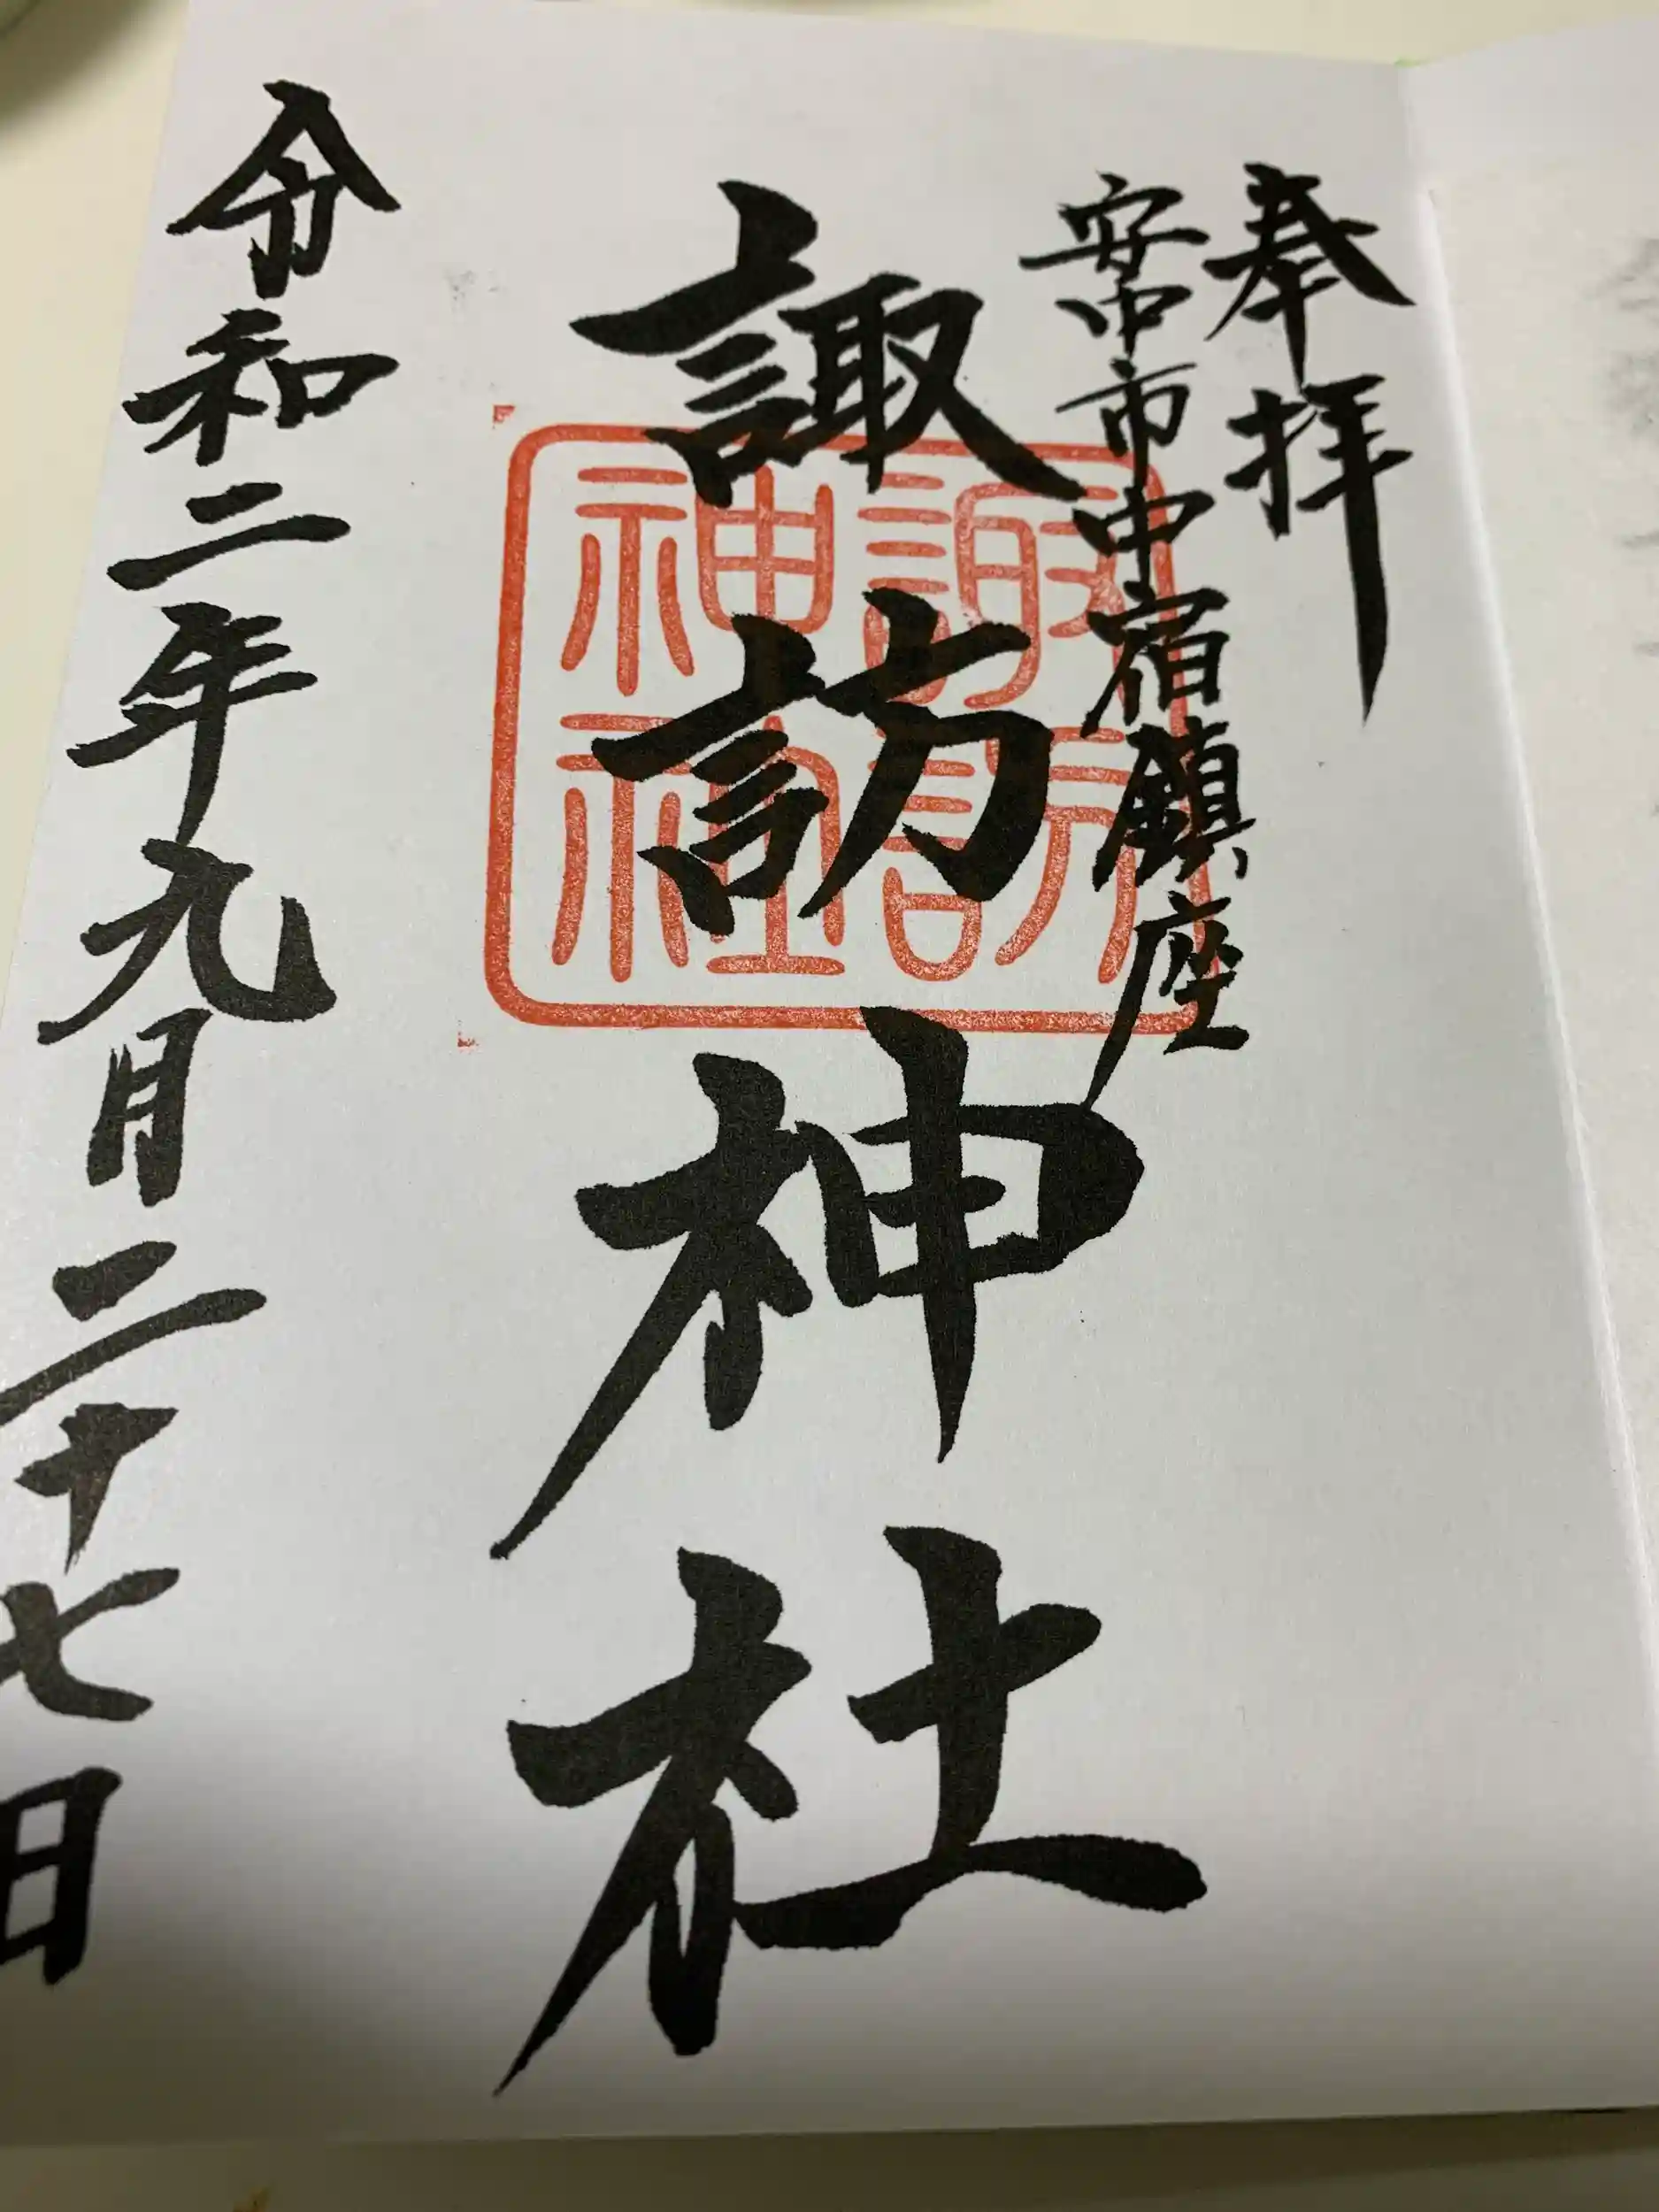 奉拝
安中市中宿鎮座
諏訪神社
諏訪
神社
令和二年九月二十七日